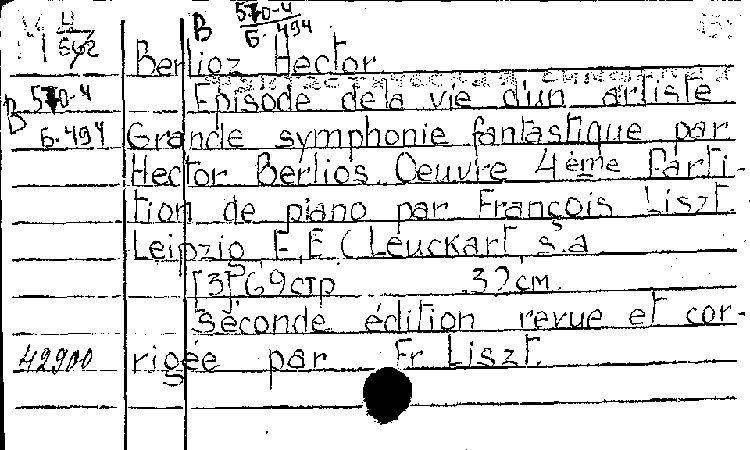 В 570-4
Б. 494
М 4
Berlioz Hector
Episode de la vie d'un artiste
В 570-4
Б. 494
Grande symphonie fantastique par
Hector Berlios. Oeuvre 4ème Parti-
tion de piano par François Liszt
Leipzig, F.E.C. Leuckart, s.a
[3] 69 стр 32 см.
Séconde édition revue et cor-
42900 rigée par Fr Liszt.